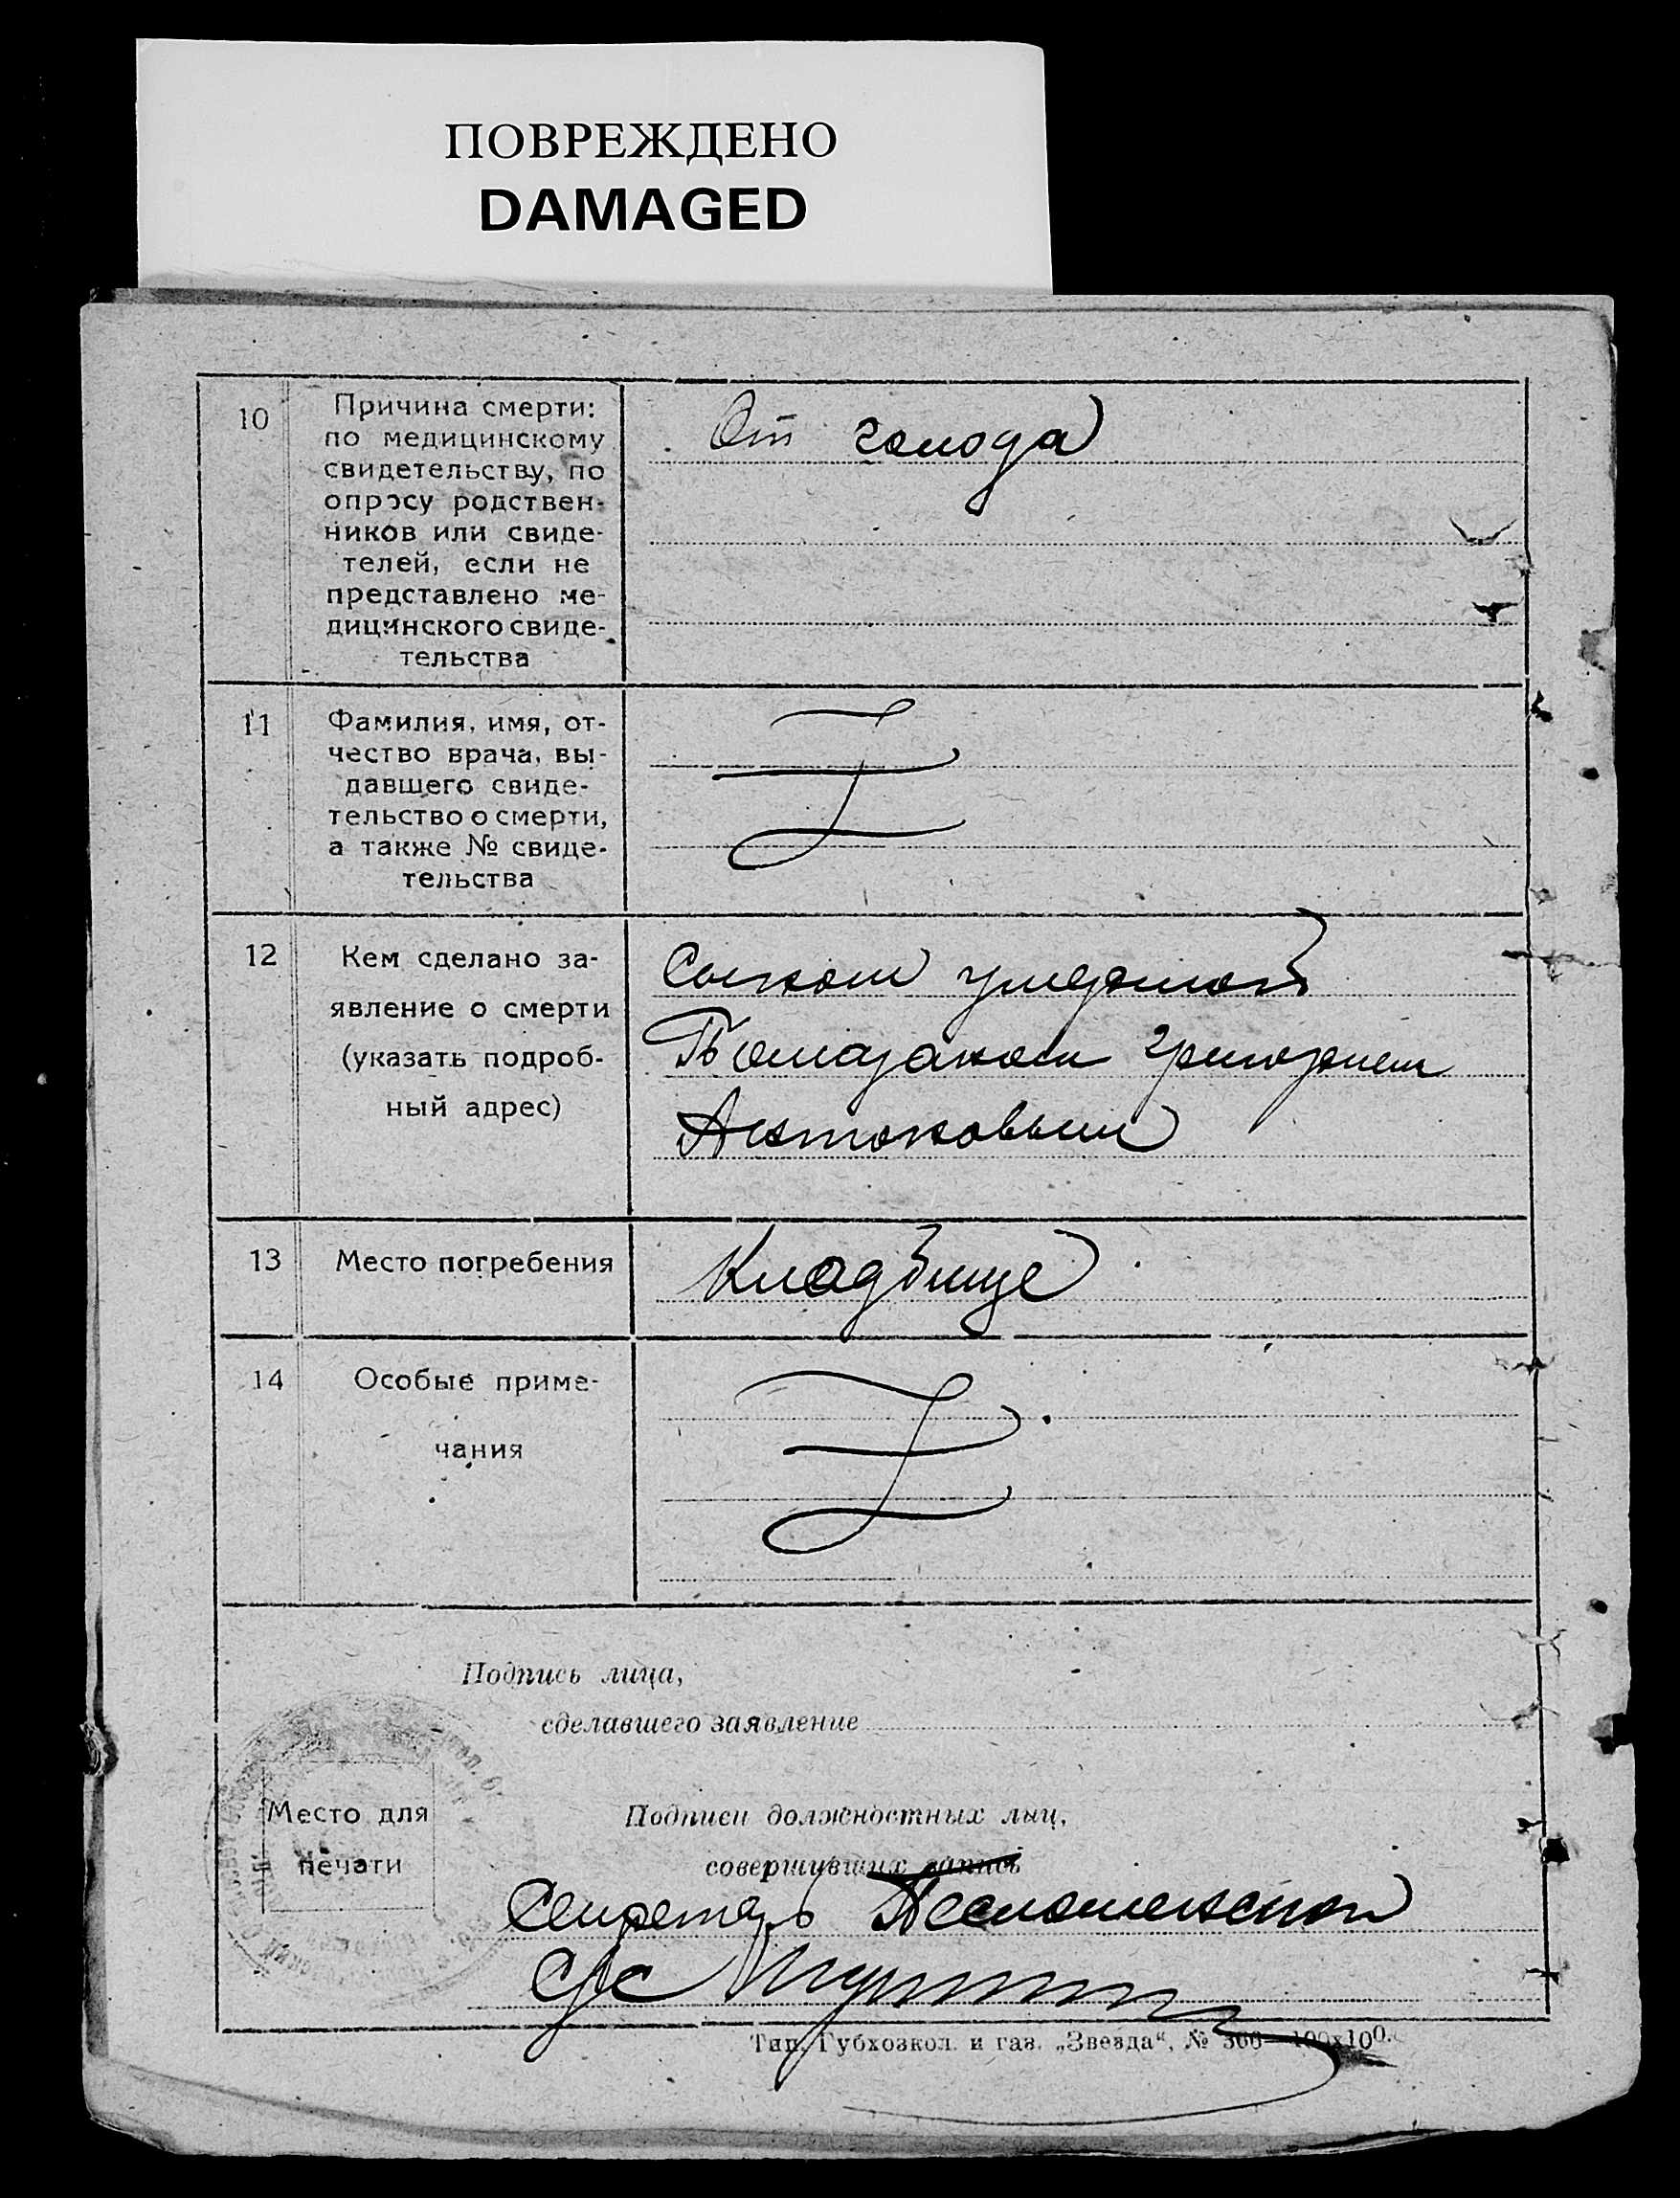 ПОВРЕЖДЕНО
DAMAGED
10
Причина смерти:
по медицинскому
свидетельству, по
опросу родствен-
ников или свиде-
телей, если не
представлено ме-
дицинского свиде-
тельства
От голода
11
Фамилия, имя, от-
чество врача, вы-
давшего свиде-
тельство о смерти,
а также № свиде-
тельства
12
Кем сделано за-
явление о смерти
(указать подроб-
ный адрес)
Сыном умершой
Помазаном Григорием
Антоновым
13
Место погребения
Кладбище
14
Особые приме-
чания
Подпись лица,
сделавшего заявление
Место для
печати
Подписи должностных лиц,
совершивших запись
Секретарь
С/с
Тип. Губхозкол. и газ. „Звезда“, № 366—100х100.